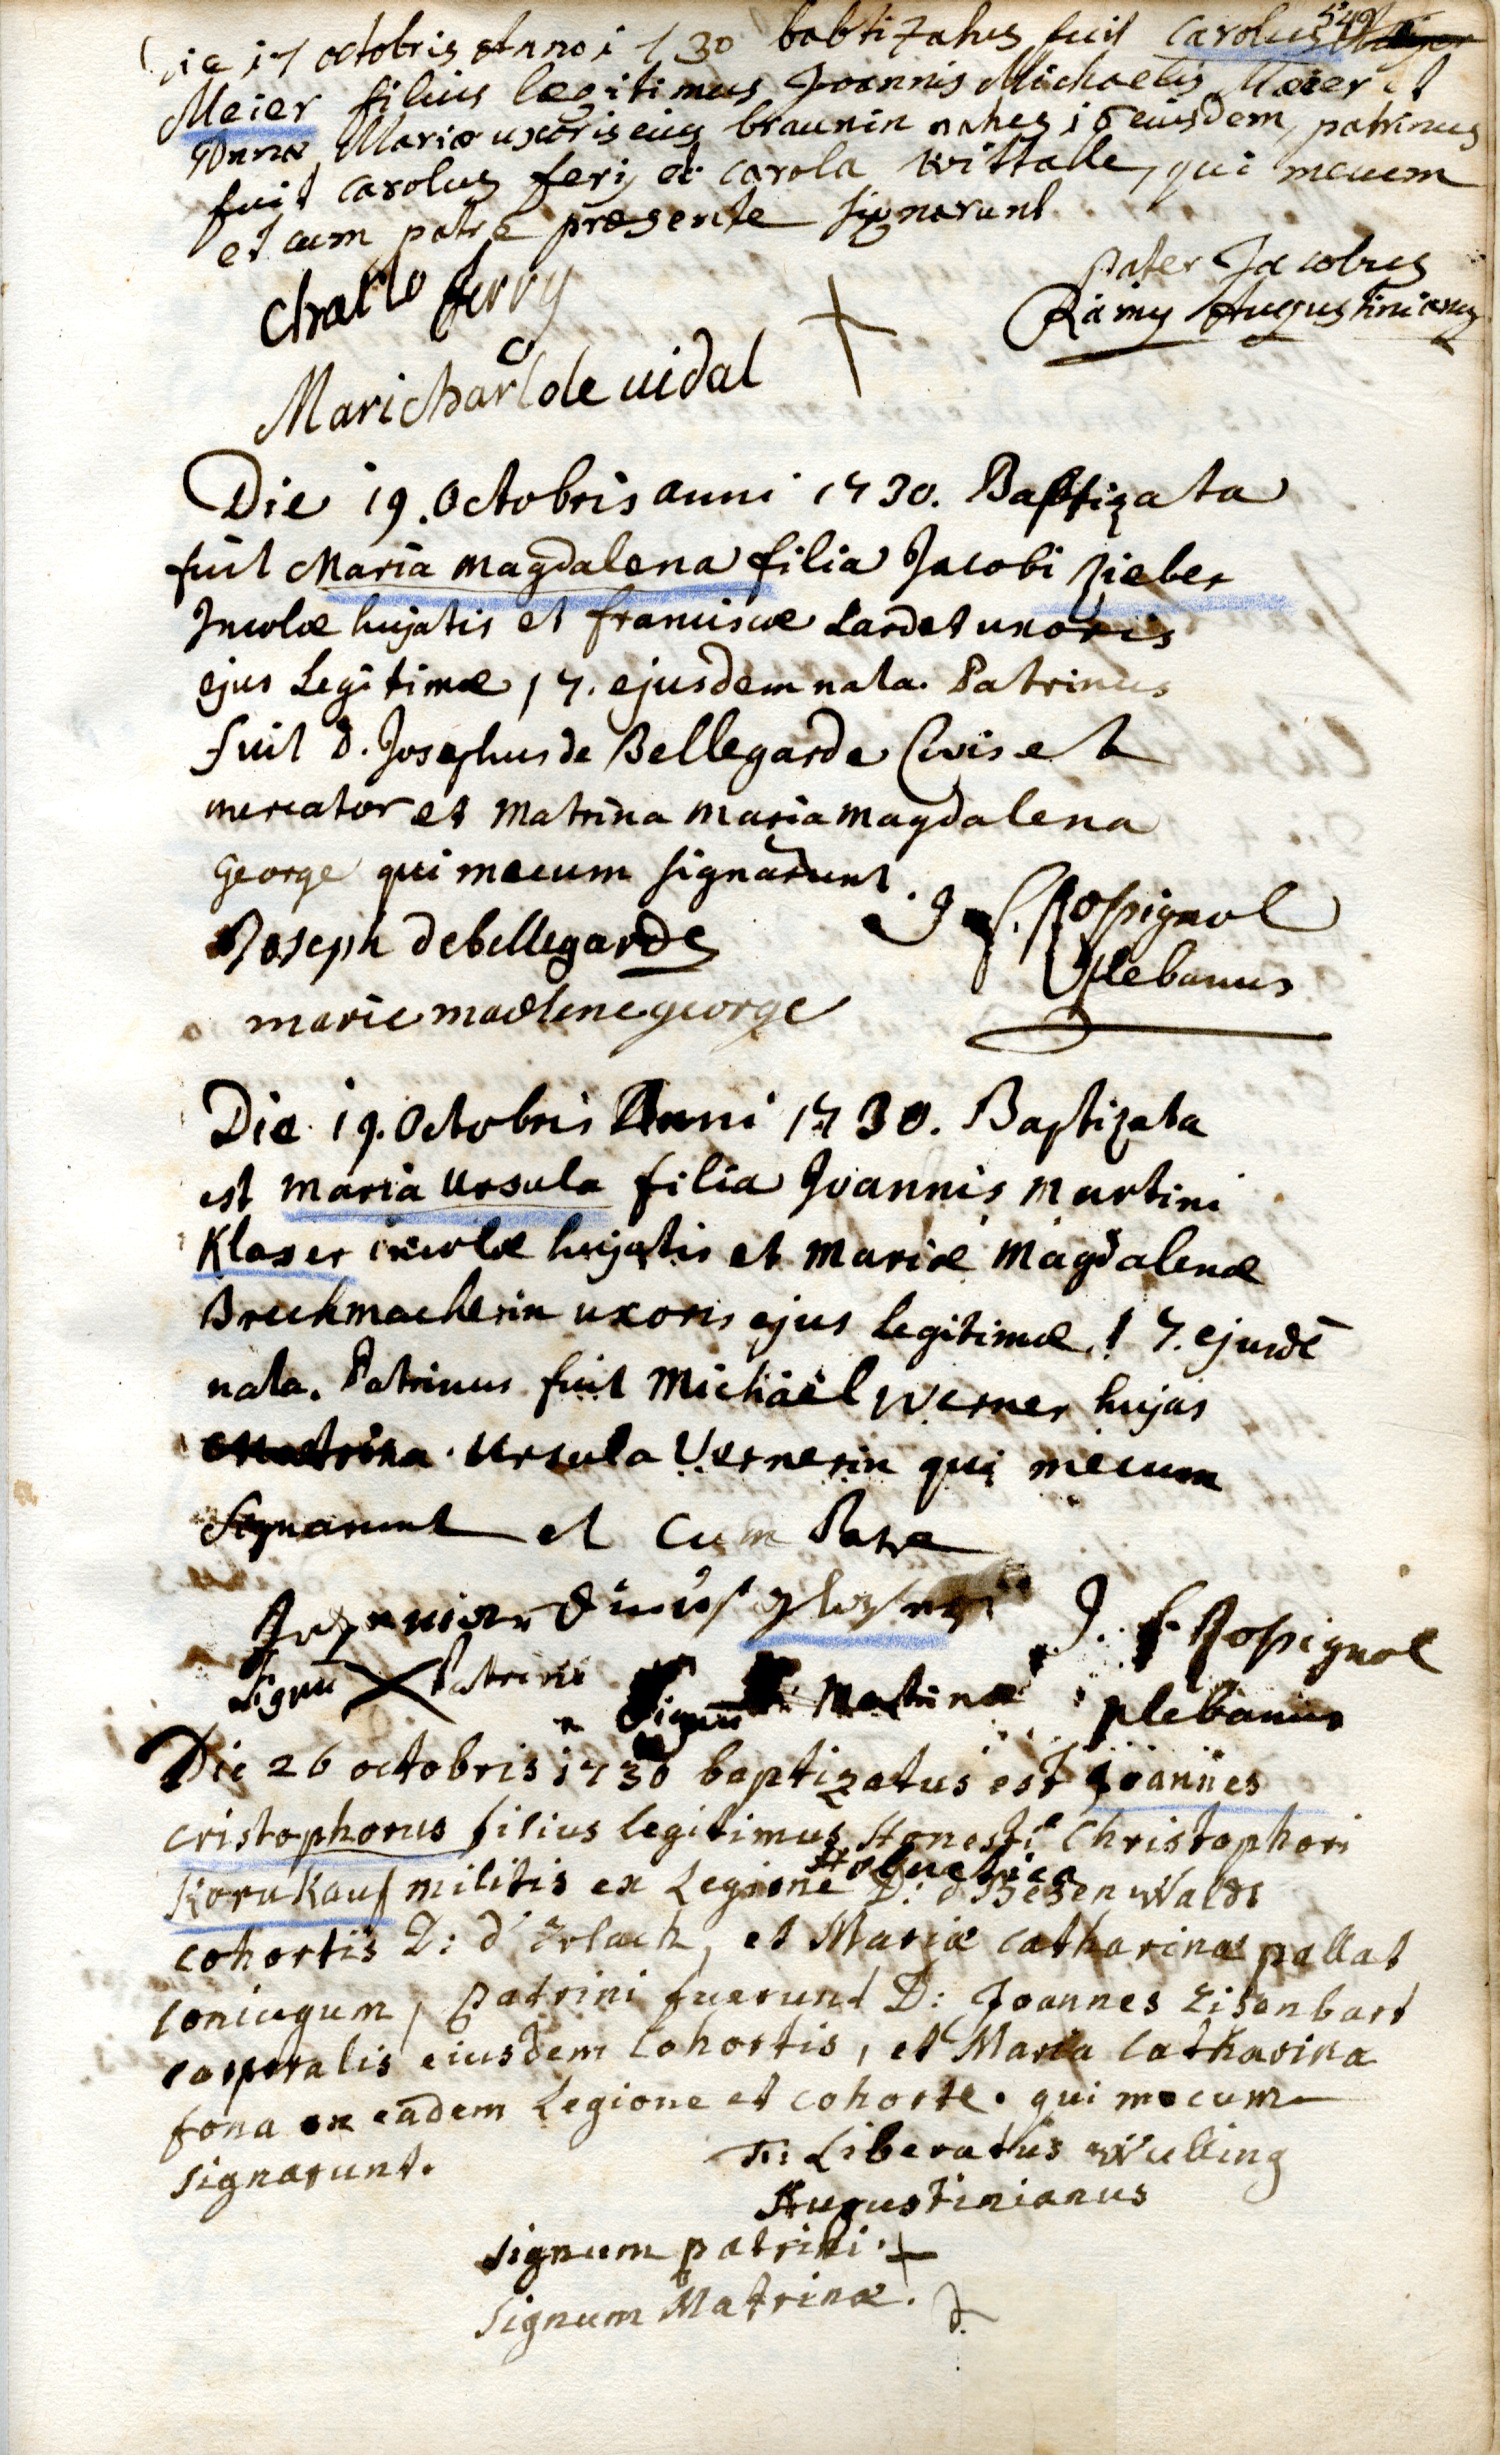 549
Die 17 octobris Anno 1730 babtizatus fuit Carolus
Meier filius legitimus Joannis Michaelis Meier et
Annæ Mariæ uxoris eius braunin natus 16 eiusdem, patrinus
fuit carolus ferij et carola wittalle, qui mecum
et cum patre præsente signarunt
pater Jacobus
Ramy Augustinianus
Charlo ferry
+
Maricharlole vidal
Die 19. Octobris anni 1730. Baptizata
fuit Maria Magdalena filia Jacobi Zieber
Incolæ hujatis et franciscæ Lardet uxoris
ejus Legitimæ, 17. ejusdem nata. Patrinus
fuit D. Josephus de Bellegarde Civis et
mercator et Matrina Maria Magdalena
George qui mecum signarunt.
J. f. Rossignol
Plebanus
Joseph debellegarde
marie madlene george
Die 19. Octobris Anni 1730. Baptizata
est Maria Ursula filia Joannis Martini
Klaser incolæ hujatis et Mariæ Magdalenæ
Bruchmacherin uxoris ejus legitimæ, 17. ejusdē
nata. Patrinus fuit Michaël Werner hujas
Matrina. Ursula Vernerin qui mecum
Signarunt et Cum Patre
J. f. Rossignol
plebanus
Signū X Patrini Signū Matrinæ
Die 26 octobris 1730 baptizatus est Joannes
cristophorus filius legitimus Honesti Christophori
Helvetica
Kornkauf militis ex Legione D: d Besenwaldt
cohortis D: d'Erlach, et Mariæ catharinæ pallat
coniugum, patrini fuerunt D: Joannes Eisenbart
corporalis eiusdem cohortis, et Maria Catharina
fona ex eadem Legione et cohorte. qui mecum
signarunt.
F: Liberatus Wulling
Augustinianus
signum patrini. +
signum Matrinæ.